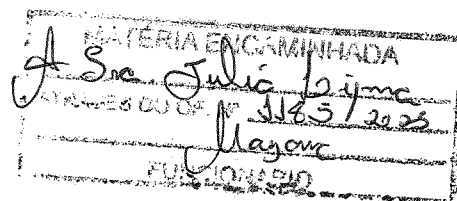 MATÉRIA ENCAMINHADA
A Sra. Julia
ATRAVÉS DO OF. Nº 1185/2023
Mayara
FUNCIONÁRIO